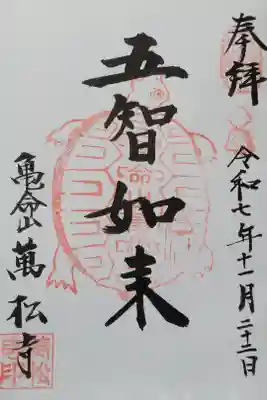 奉拝
令和七年十一月二十二日
五智如来
亀命山 萬松寺